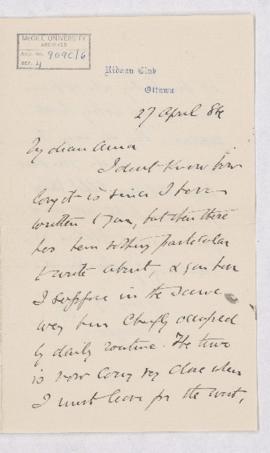 McGILL UNIVERSITY
ARCHIVES
ACC. NO. 909C/6
REF. 4
Rideau Club
Ottawa
27 April 84
My dear Anna
I don't know how
long it is since I have
written to you, but then there
has been nothing particular
to write about, & you have
I suppose in the same
way been chiefly occupied
by daily routine. The time
is now coming very close when
I must leave for the west,